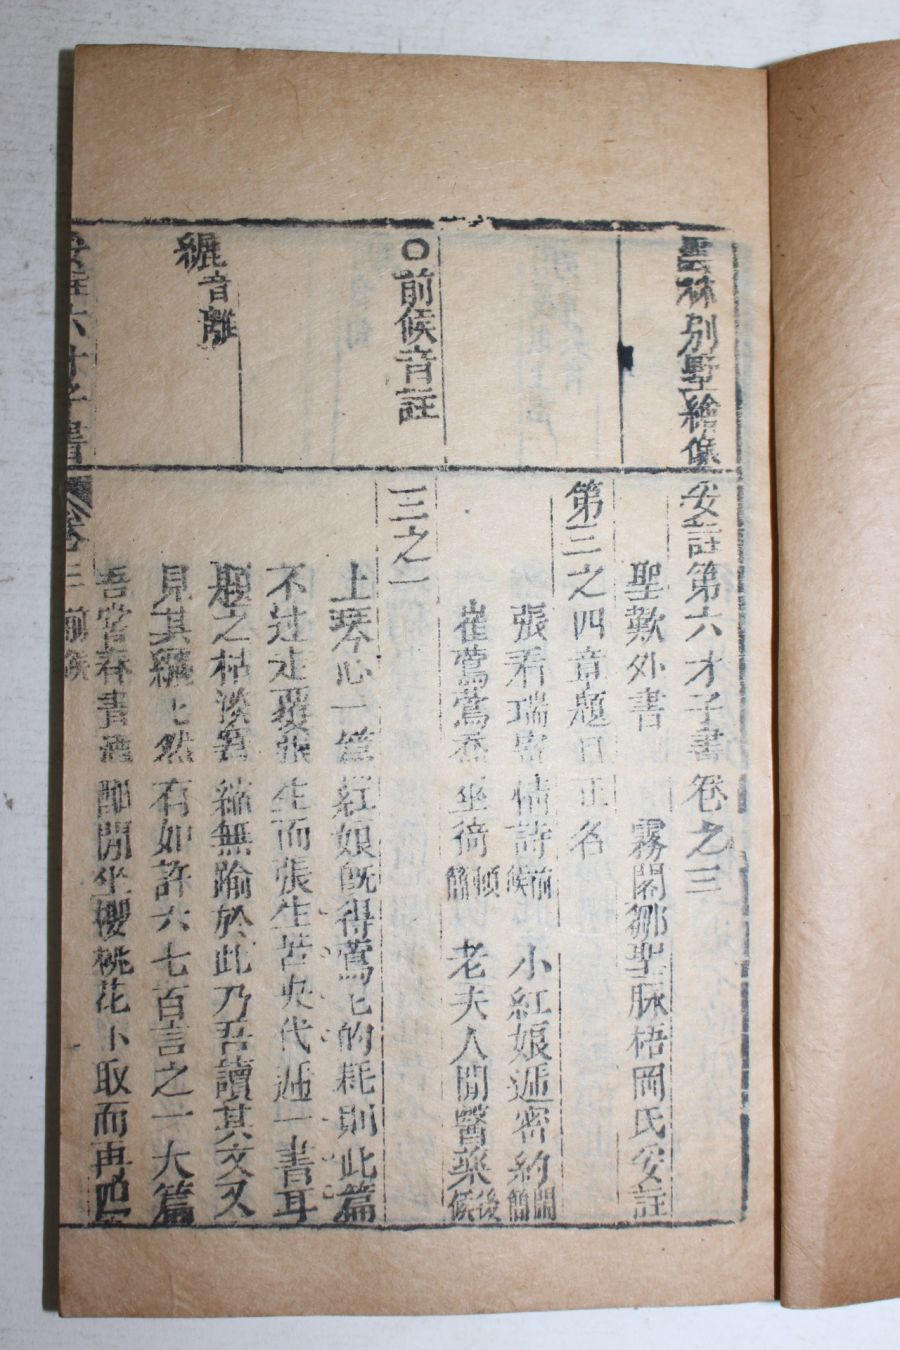 雲林別墅繪像
○前候音註
纚音離
妥註第六才子書卷之三
聖歎外書 霧閣鄒聖脉梧岡氏妥註
第三之四章題目正名
張君瑞寄情詩前候 小紅娘遞密約鬧簡
崔鶯鶯喬坐衙賴簡 老夫人問醫藥後候
三之一
上琴心一篇紅娘旣得鶯〻的耗則此篇
不过走覆張生而張生苦央代遞一書耳
題之枯淡窘縮無踰於此乃吾讀其文又
見其纚〻然有如許六七百言之一大篇
吾嘗春晝酒酣閒坐櫻桃花下取而再四
妥註六才子書 卷三 前候